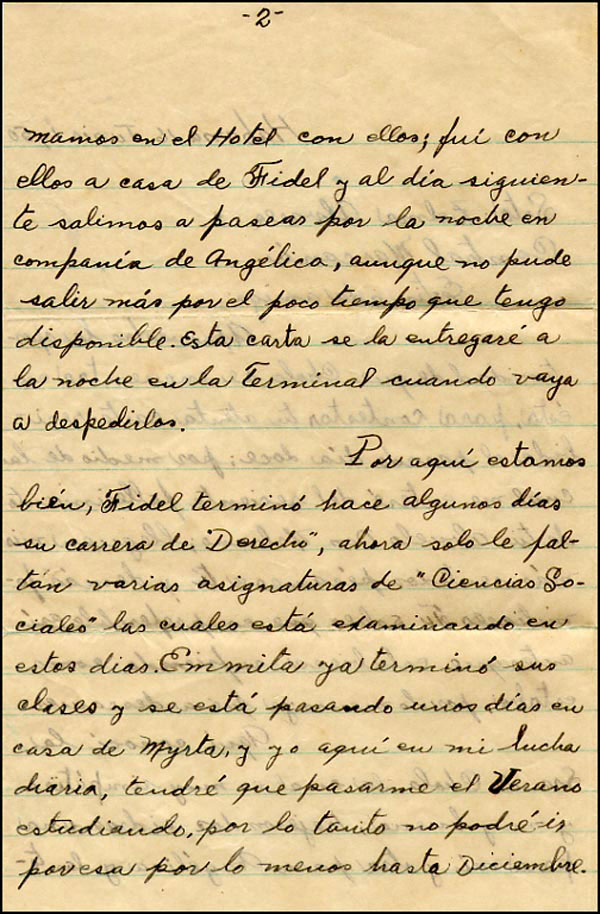 -2-
mamos en el Hotel con ellos; fui con
ellos a casa de Fidel y al día siguien-
te salimos a pasear por la noche en
compañia de Angélica, aunque no pude
salir más por el poco tiempo que tengo
disponible. Esta carta se la entregaré a
la noche en la Terminal cuando vaya
a despedirlos.
Por aquí estamos
bién, Fidel terminó hace algunos días
su carrera de "Derecho", ahora solo le fal-
tan varias asignaturas de "Ciencias So-
ciales" las cuales está examinando en
estos dias. Emmita ya terminó sus
clases y se está pasando unos días en
casa de Myrta, y yo aquí en mi lucha
diaria, tendré que pasarme el Verano
estudiando, por lo tanto no podré ir
por esa por lo menos hasta Diciembre.